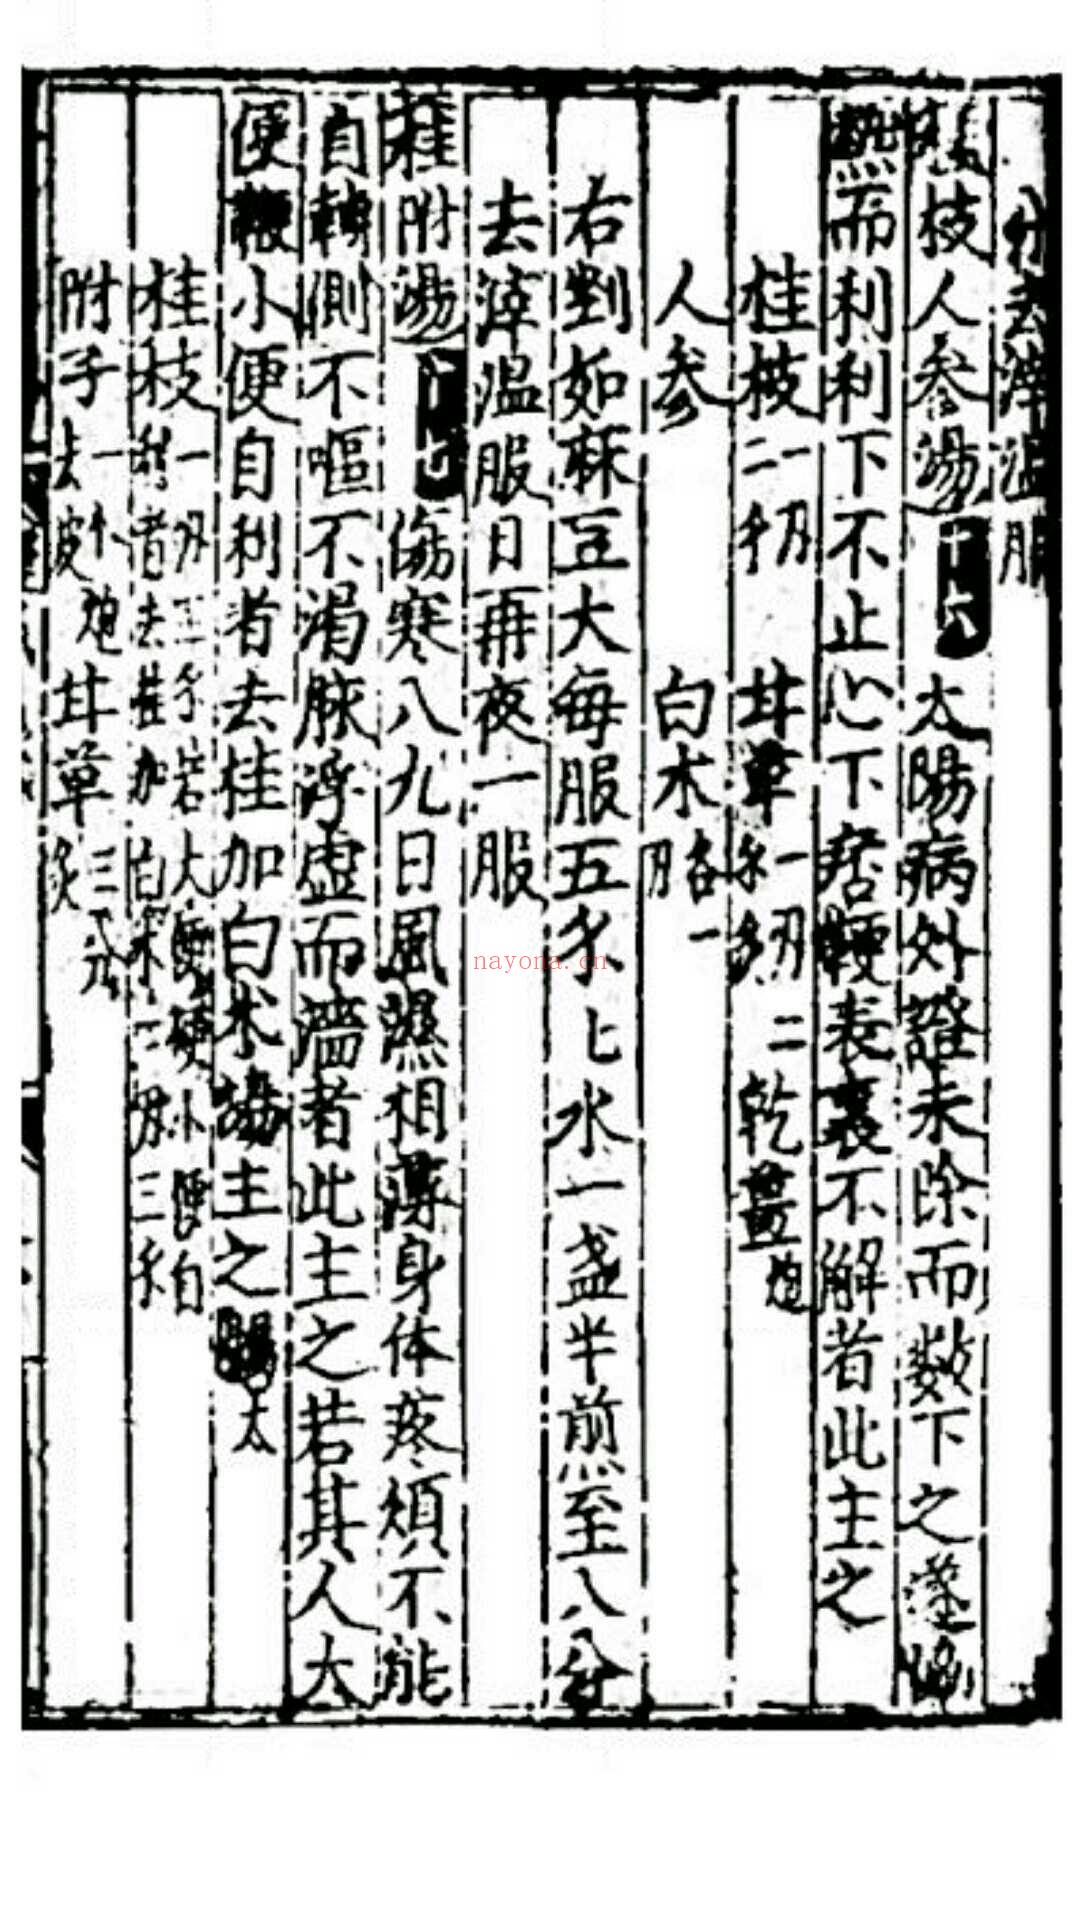 分去滓温服
桂枝人参湯十六 太陽病外證未除而數下之遂恊
熱而利利下不止心下痞鞕表裏不解者此主之
桂枝一刄二分 甘草一刄二分炙 乾薑炮
人参 白朮各一刄
右剉如麻豆大每服五分匕水一盞半煎至八分
去滓温服日再夜一服
桂附湯十七 傷寒八九日風濕相薄身体疼煩不能
自轉側不嘔不渴脉浮虚而濇者此主之若其人大
便鞕小便自利者去桂加白朮湯主之太
桂枝一刄三分若大便硬小便自利者去桂加白朮一刄三分
附子一个炮去皮 甘草三分炙
nayona.cn